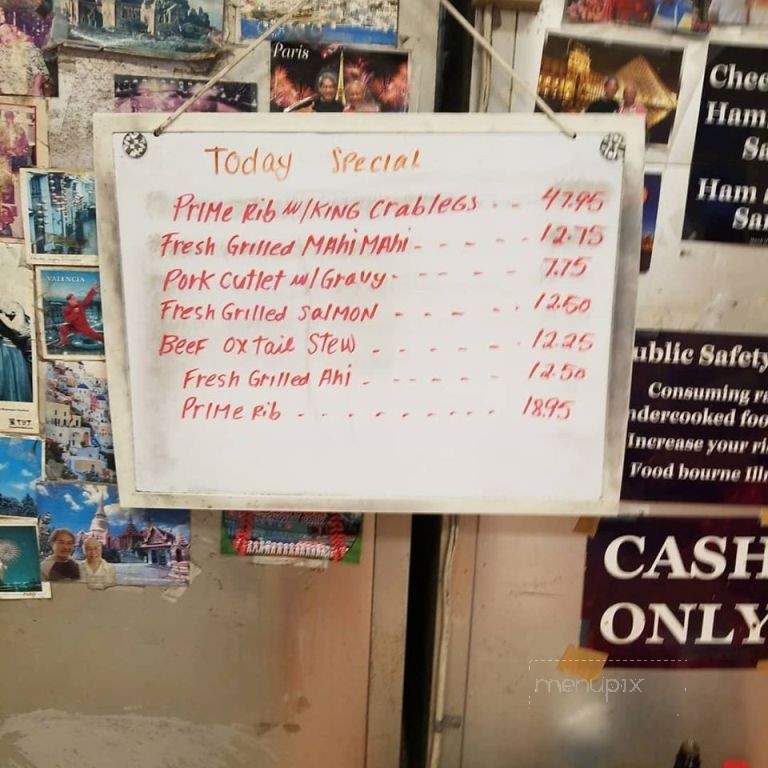 Paris
Today Special
Prime Rib w/King Crablegs - - 47.95
Fresh Grilled Mahi Mahi - - - - - 12.75
Pork Cutlet w/Gravy - - - - 7.75
Fresh Grilled Salmon - - - - - 12.50
Beef Oxtail Stew - - - - - - 12.25
Fresh Grilled Ahi - - - - - - 12.50
Prime Rib - - - - - - - - - - 18.95
VALENCIA
Ham
Ham
Public Safety
Consuming
Increase your
Food bourne
CASH
ONLY
menupix